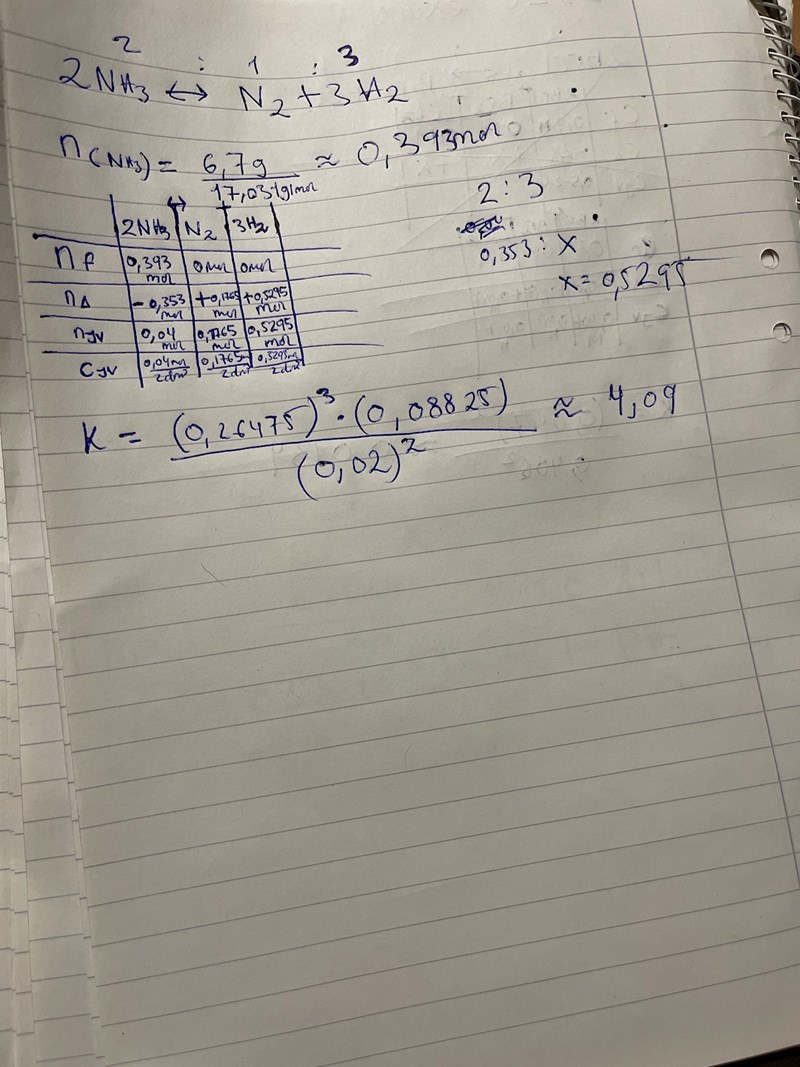 2 : 1 : 3
2NH₃ ↔ N₂ + 3H₂
n(NH₃) = 6,7g / 17,031g/mol ≈ 0,393mol
2 : 3
0,353 : x
x = 0,5295
2NH₃ ↔ N₂ + 3H₂
nf 0,393 mol 0mol 0mol
nΔ -0,353 mol +0,1765 mol +0,5295 mol
njv 0,04 mol 0,1765 mol 0,5295 mol
Cjv 0,04mol/2dm³ 0,1765m/2dm³ 0,5295m/2dm³
K = (0,26475)³ · (0,08825) / (0,02)² ≈ 4,09